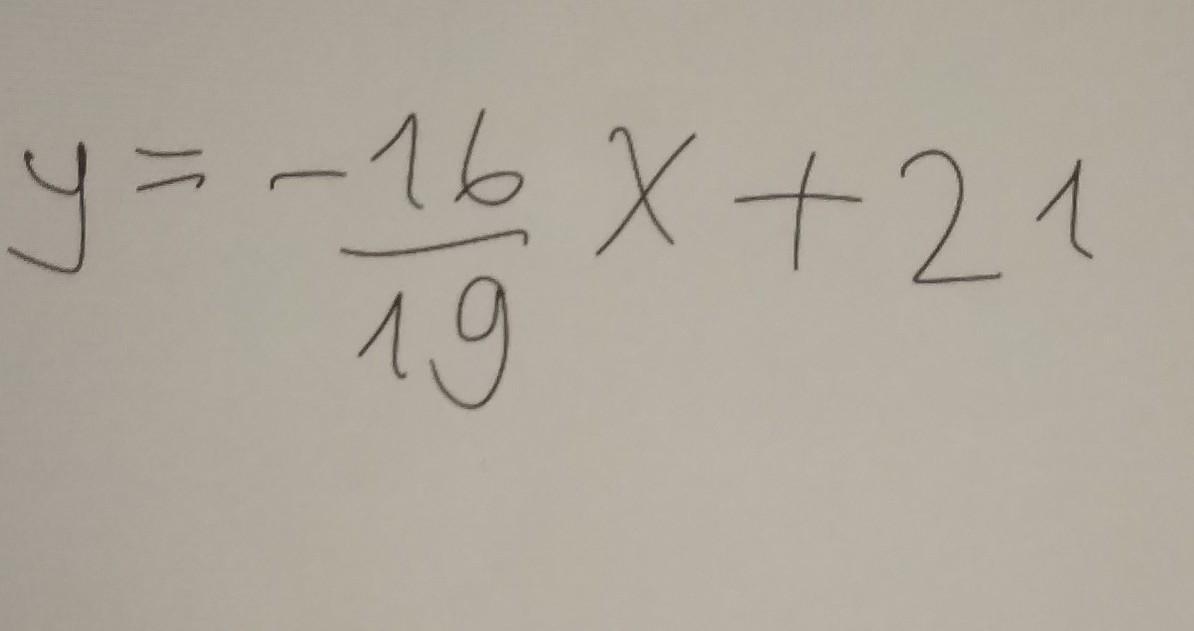 y = -16/19 x + 21